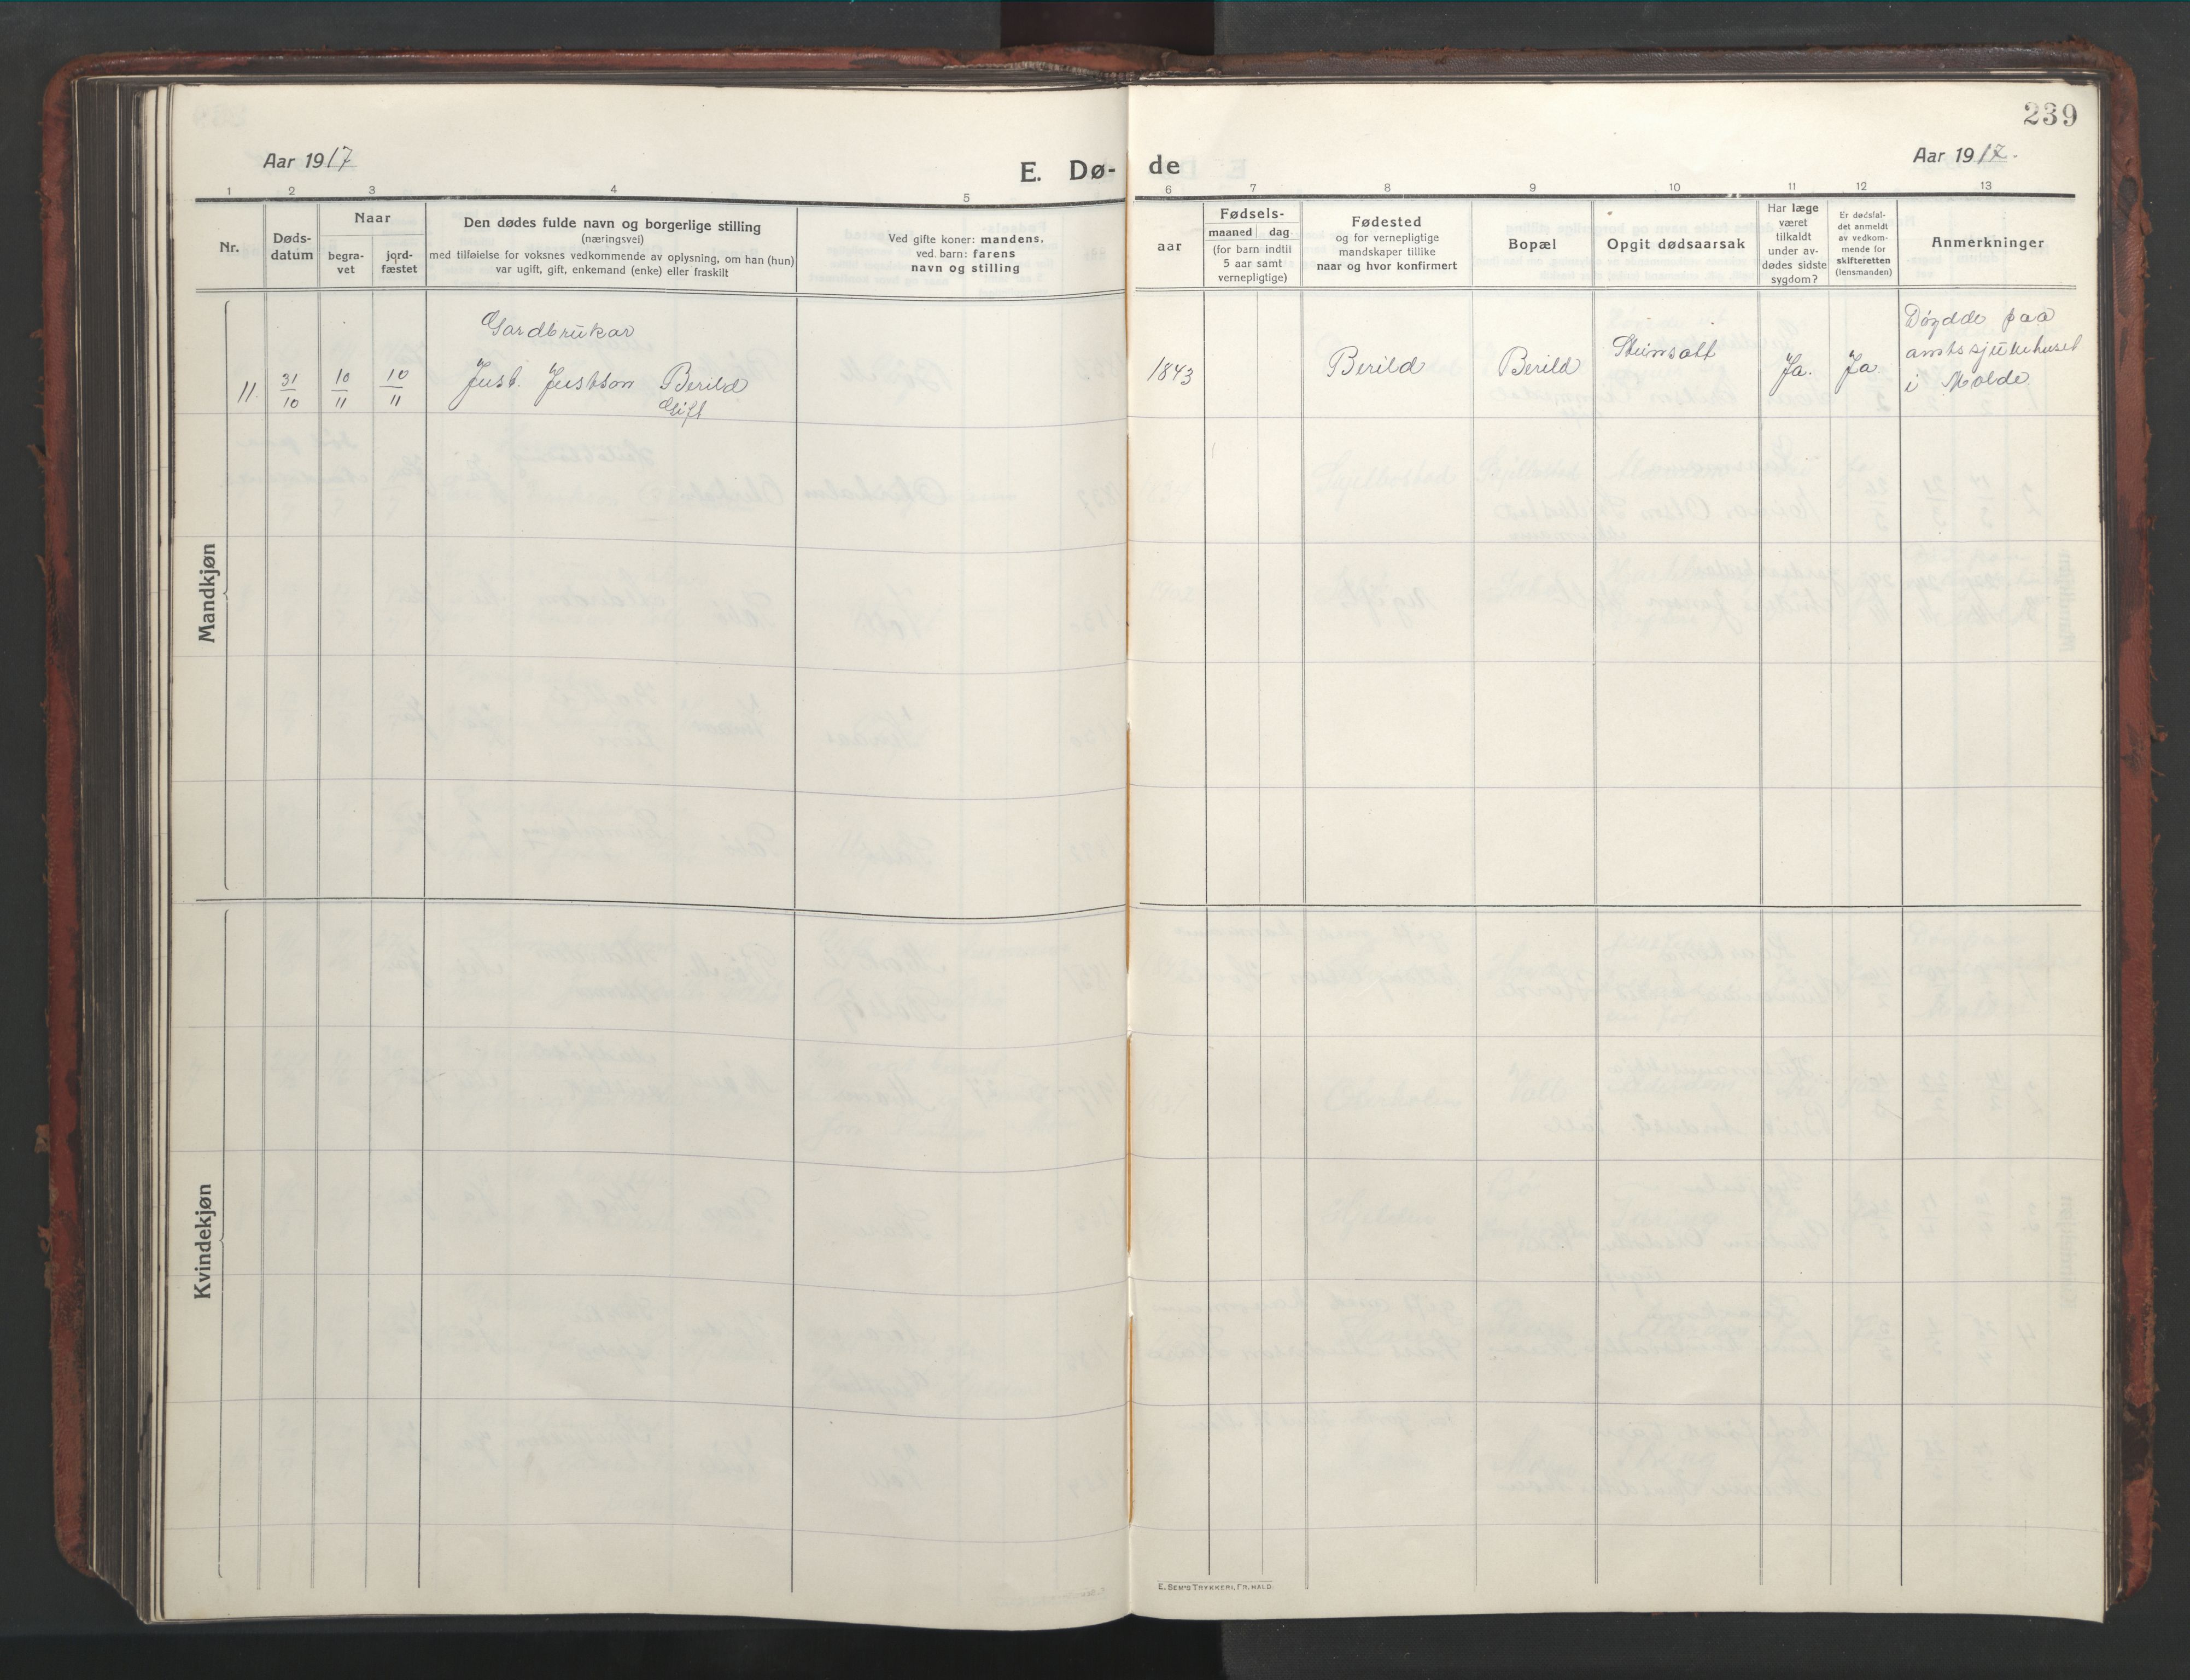 239
Aar 1917
E. Dø-
de
Aar 1917.
1 2 3 4 5 6 7 8 9 10 11 12 13
Nr.
Døds-
datum
Naar
begra-
vet
jord-
fæstet
Den dødes fulde navn og borgerlige stilling
(næringsvei)
med tilføielse for voksnes vedkommende av oplysning, om han (hun)
var ugift, gift, enkemand (enke) eller fraskilt
Ved gifte koner: mandens,
ved. barn: farens
navn og stilling
aar
Fødsels-
maaned dag
(for barn indtil
5 aar samt
vernepligtige)
Fødested
og for vernepligtige
mandskaper tillike
naar og hvor konfirmert
Bopæl
Opgit dødsaarsak
Har læge
været
tilkaldt
under av-
dødes sidste
sygdom?
Er dødsfal-
det anmeldt
av vedkom-
mende for
skifteretten
(lensmanden)
Anmerkninger
Mandkjøn
11.
31/10
10/11
10/11
Gardbrukar
Just. Justson Berild
Gift
1843
Berild
Berild
Steinsott
Ja.
Ja.
Døydde paa
amtssjukehuset
i Molde
Kvindekjøn
E. SEM'S TRYKKERI, FR. HALD.